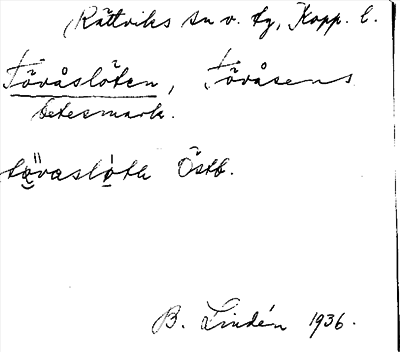 Rättviks sn o. tg, Kopp. l.
Tövåslöten, Tövåsens
betesmark.
tövaslötə Östb.
B. Lindén 1936.